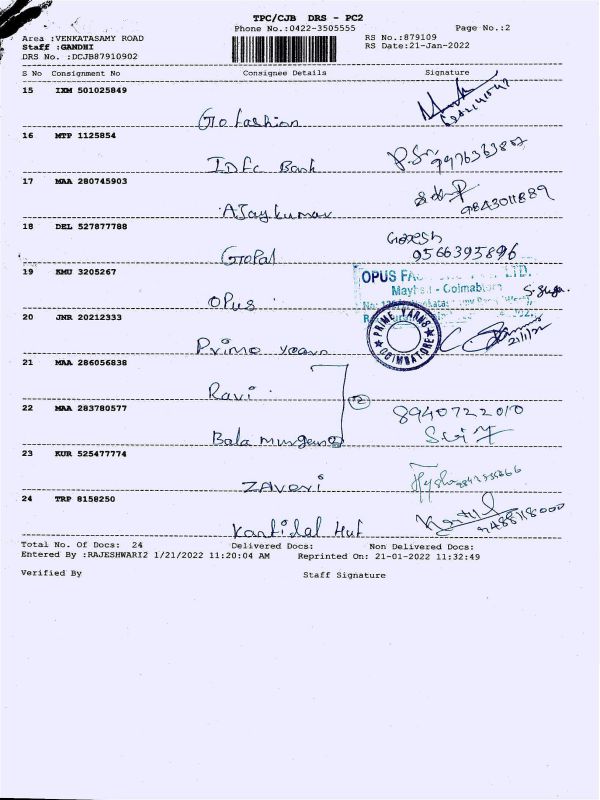 TPC/CJB DRS - PC2
Phone No.:0422-3505555
Page No.:2
Area :VENKATASAMY ROAD
RS No.:879109
Staff :GANDHI
RS Date:21-Jan-2022
DRS No. :DCJB87910902
S No Consignment No Consignee Details Signature
15 IXM 501025849
Go fashion
16 MTP 1125854
IDFC Bank
P.Sri
17 MAA 280745903
AJay kumar
9843011889
18 DEL 527877788
Gopal
Ganesh
9566395896
19 KMU 3205267
OPUS
OPUS
- Coimbatore
LTD.
20 JNR 20212333
Prime yarn
PRIME YARNS
COIMBATORE
21/1/22
21 MAA 286056838
Ravi
2
22 MAA 283780577
Bala murugan
8940722010
23 KUR 525477774
ZAVERI
24 TRP 8158250
Kantidal Hut
9488118000
Total No. Of Docs: 24 Delivered Docs: Non Delivered Docs:
Entered By :RAJESHWARI2 1/21/2022 11:20:04 AM Reprinted On: 21-01-2022 11:32:49
Verified By Staff Signature